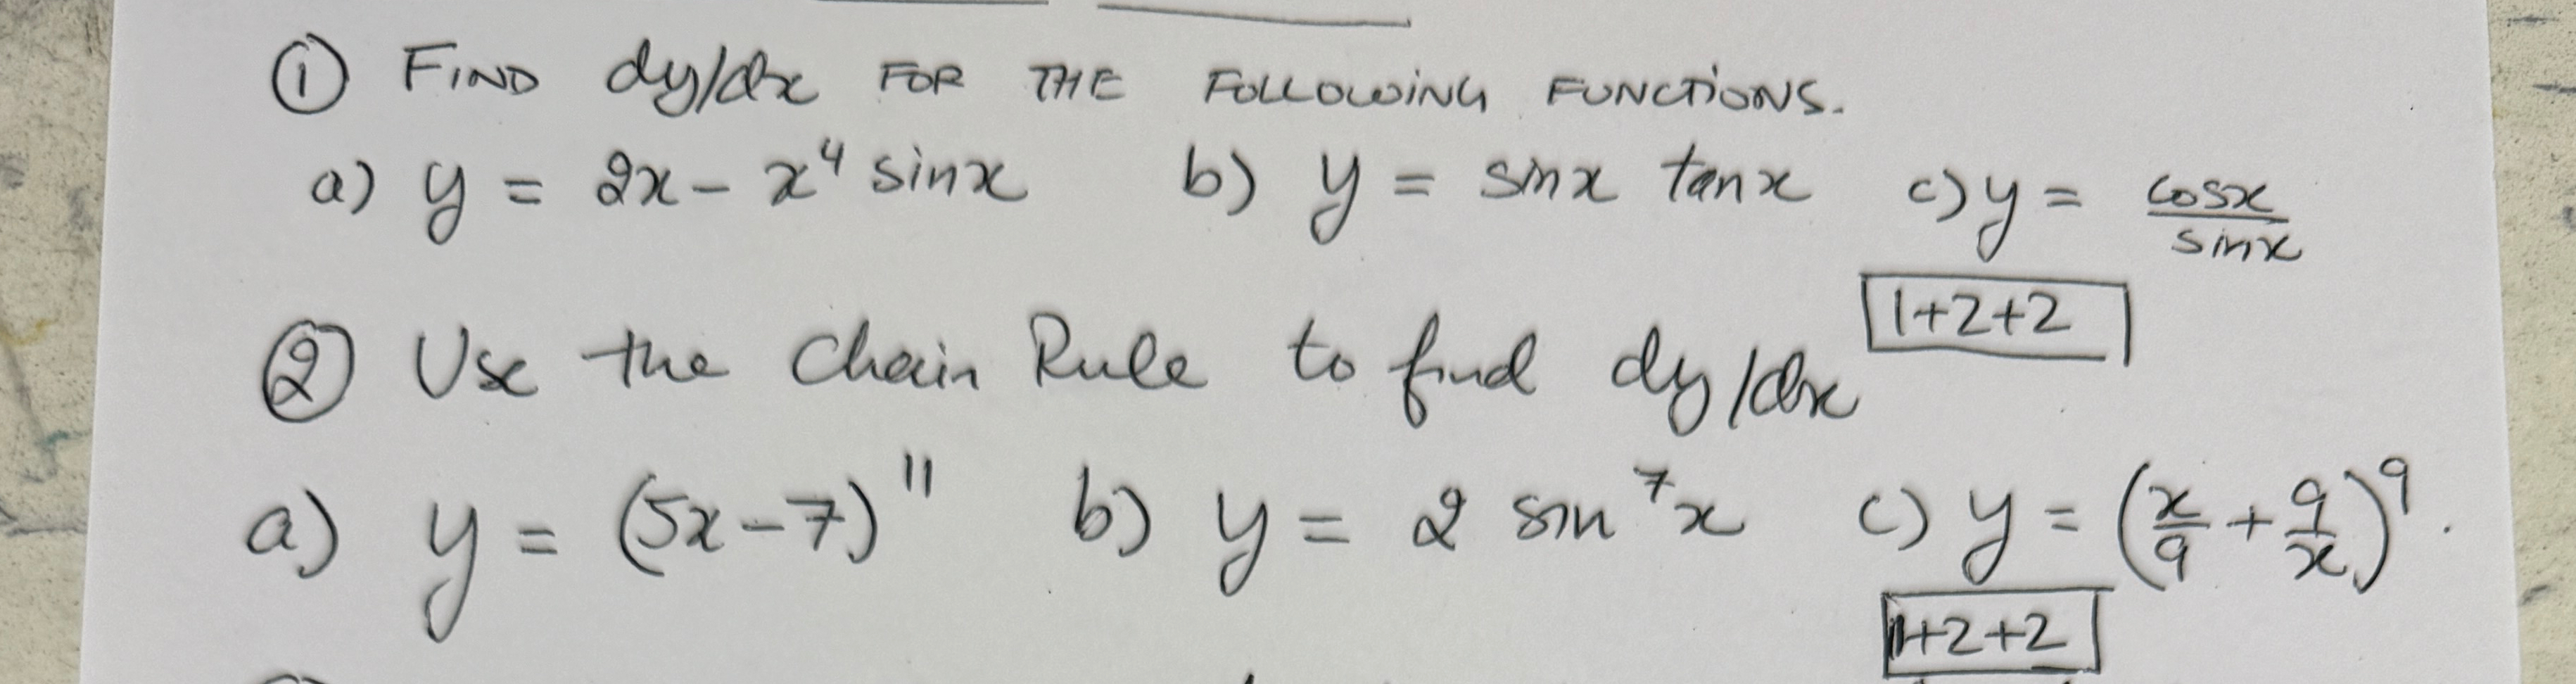 ① FIND dy/dx FOR THE FOLLOWING FUNCTIONS.
a) y = 2x - x⁴ sinx b) y = sinx tanx c) y = cosx/sinx
1+2+2
② Use the Chain Rule to find dy/dx
a) y = (5x-7)¹¹ b) y = 2 sin⁷x c) y = (x/9 + 9/x)⁹.
1+2+2